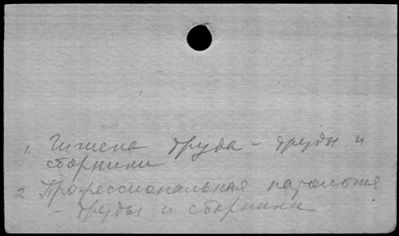 1. Гигиена труда - труды и
сборники
2 Профессиональная патология
- труды и сборники